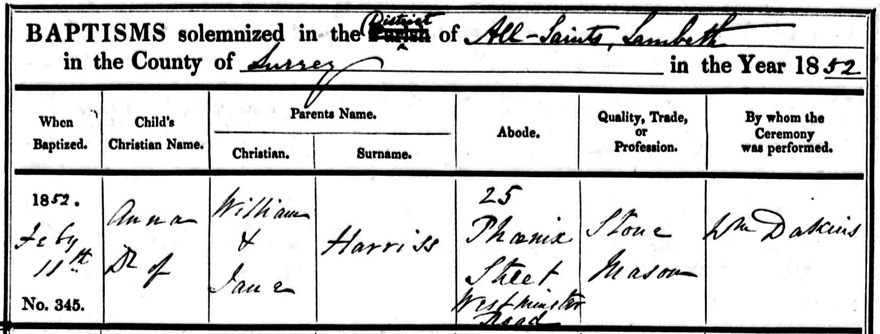 BAPTISMS solemnized in the District Parish of All-Saints, Lambeth
in the County of Surrey in the Year 1852
When Baptized.
Child's Christian Name.
Parents Name.
Christian.
Surname.
Abode.
Quality, Trade, or Profession.
By whom the Ceremony was performed.
1852.
Feby
11th
No. 345.
Anna
Dr of
William
&
Jane
Harriss
25
Phœnix
Street
Westminster
Road
Stone
Mason
Wm Dakins